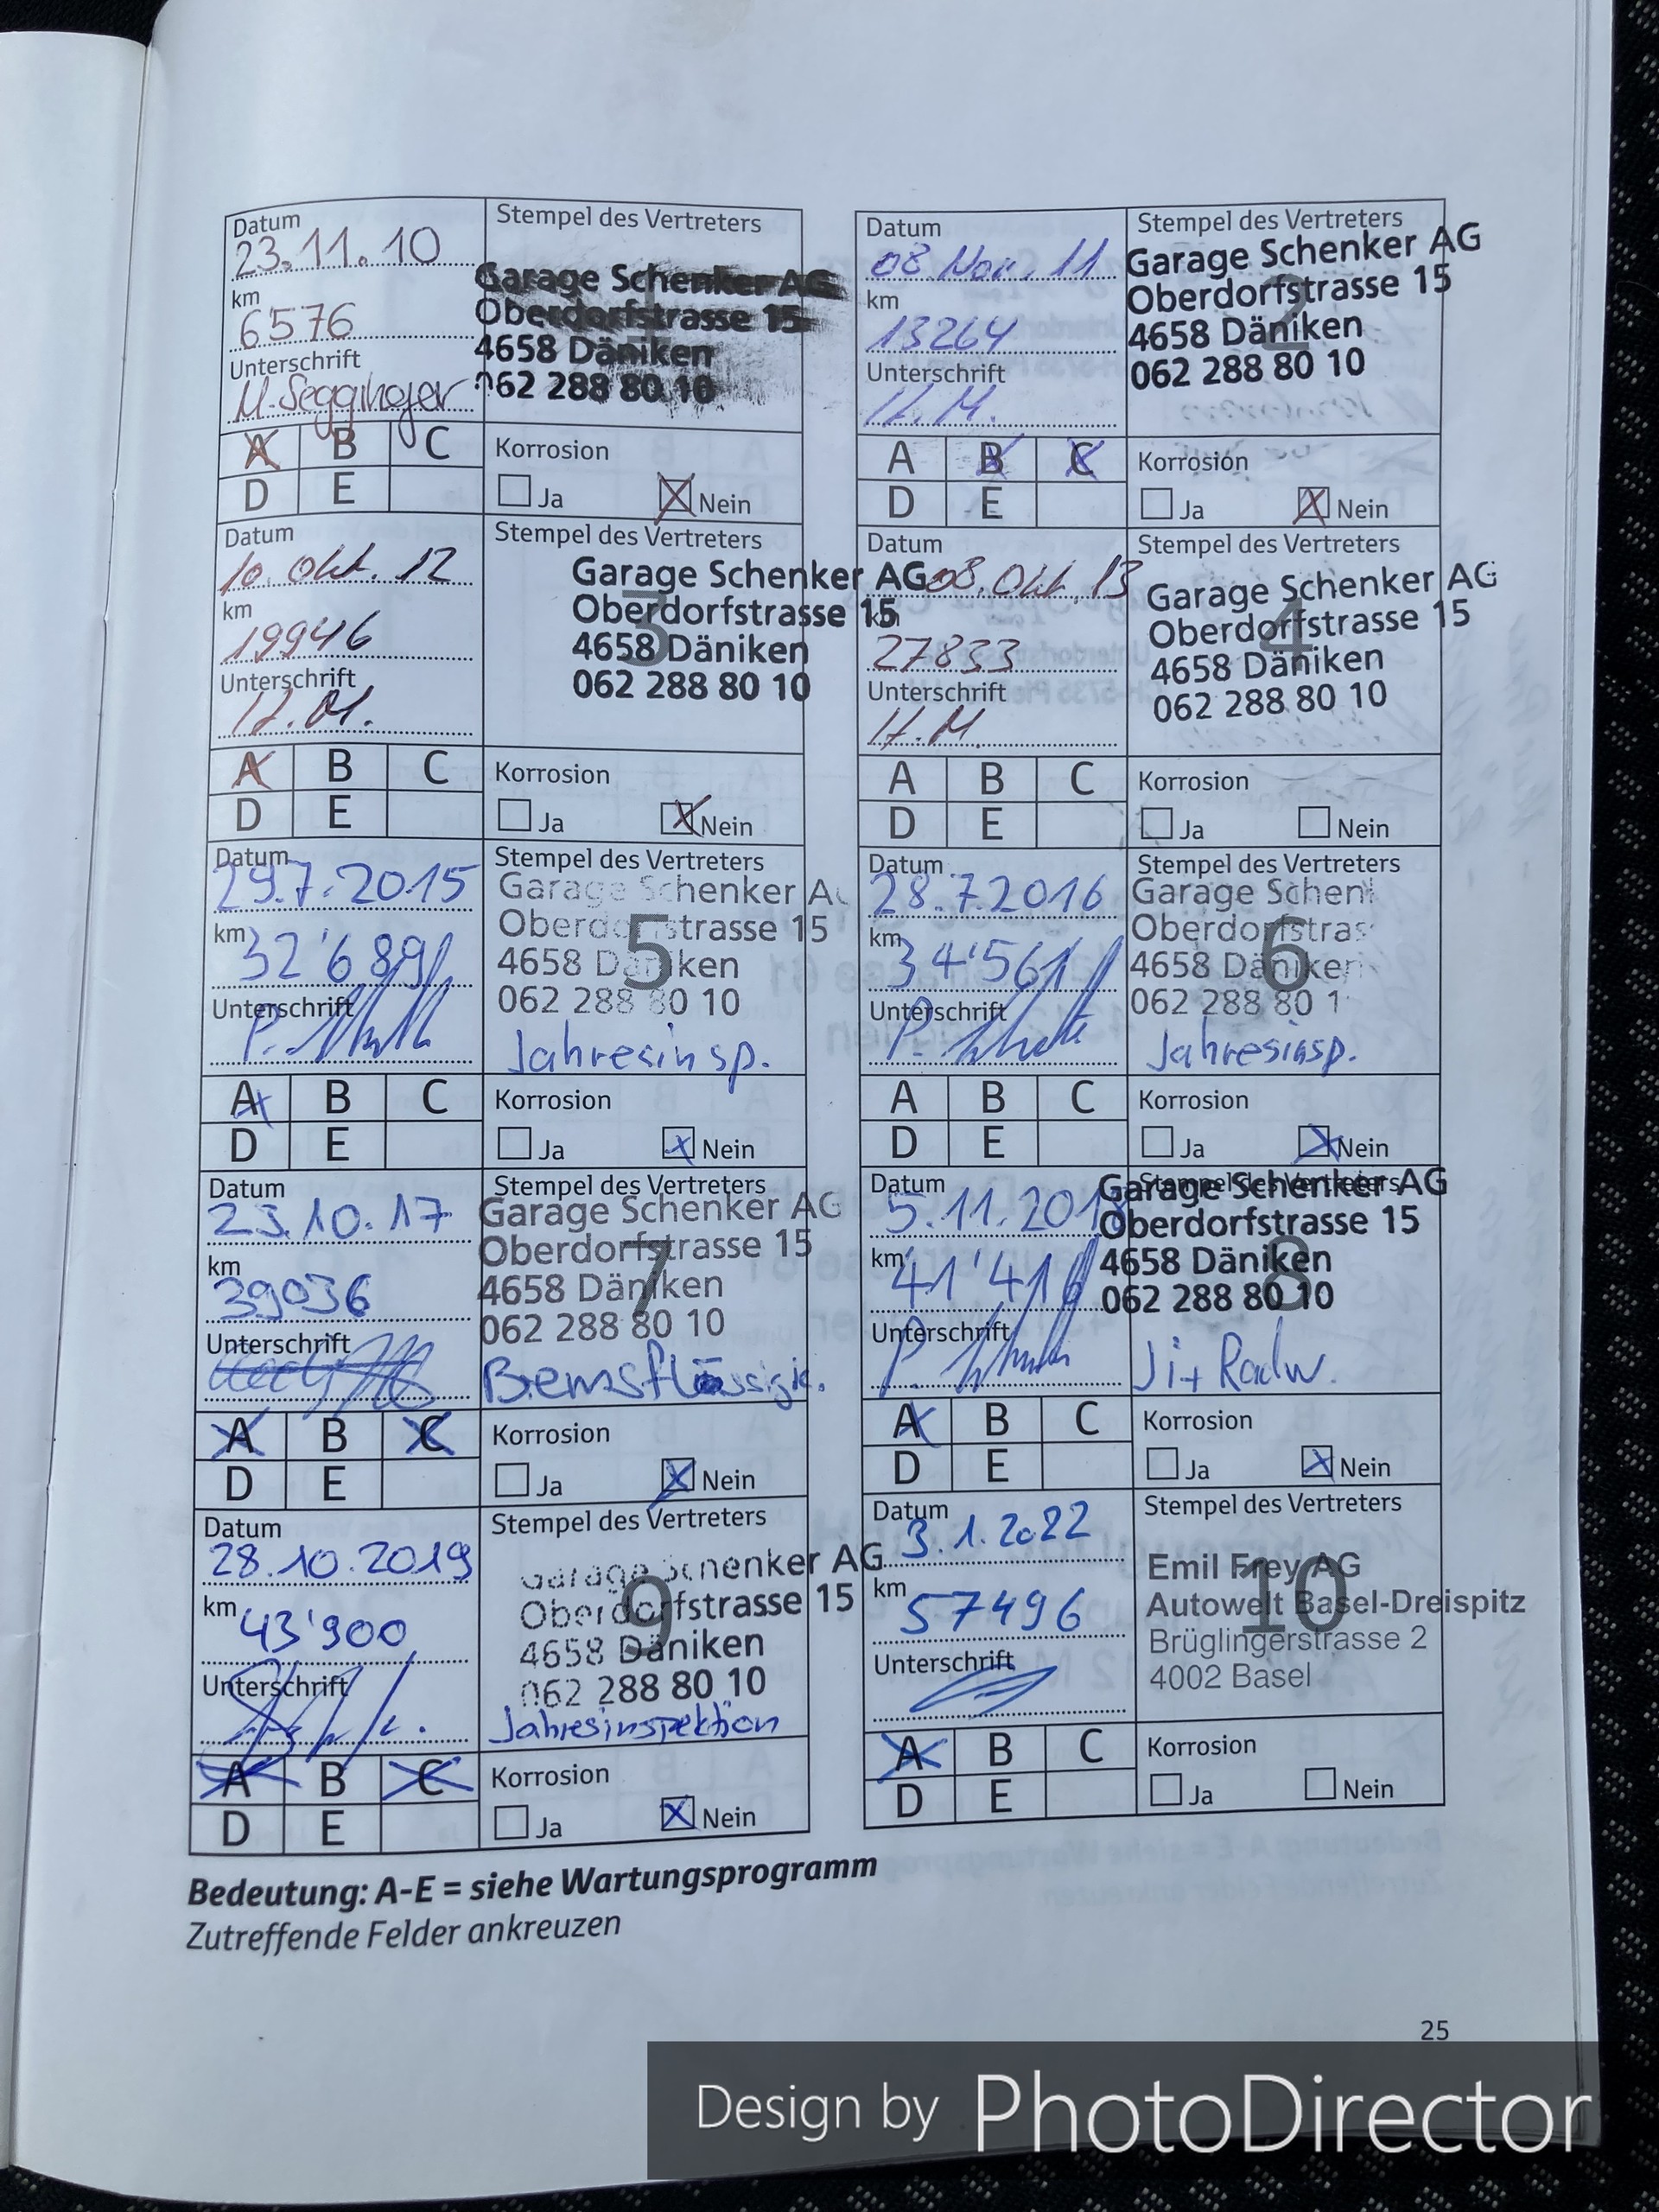 Datum
23.11.10
km
6'576
Unterschrift
Stempel des Vertreters
1
Garage Schenker AG
Oberdorfstrasse 15
4658 Däniken
062 288 80 10
A B C
D E
Korrosion
Ja Nein
Datum
08 Nov. 11
km
13264
Unterschrift
H.M.
Stempel des Vertreters
2
Garage Schenker AG
Oberdorfstrasse 15
4658 Däniken
062 288 80 10
A B C
D E
Korrosion
Ja Nein
Datum
10. Okt. 12
km
19946
Unterschrift
H.M.
Stempel des Vertreters
3
Garage Schenker AG
Oberdorfstrasse 15
4658 Däniken
062 288 80 10
A B C
D E
Korrosion
Ja Nein
Datum
08. Okt. 13
km
27833
Unterschrift
H.M.
Stempel des Vertreters
4
Garage Schenker AG
Oberdorfstrasse 15
4658 Däniken
062 288 80 10
A B C
D E
Korrosion
Ja Nein
Datum
29.7.2015
km
32'689
Unterschrift
Stempel des Vertreters
5
Garage Schenker AG
Oberdorfstrasse 15
4658 Däniken
062 288 80 10
Jahresinsp.
A B C
D E
Korrosion
Ja Nein
Datum
28.7.2016
km
34'561
Unterschrift
Stempel des Vertreters
6
Garage Schen
Oberdorfstras
4658 Däniken
062 288 80 1
Jahresinsp.
A B C
D E
Korrosion
Ja Nein
Datum
23.10.17
km
39036
Unterschrift
Stempel des Vertreters
7
Garage Schenker AG
Oberdorfstrasse 15
4658 Däniken
062 288 80 10
Bremsflüssigk.
A B C
D E
Korrosion
Ja Nein
Datum
5.11.2018
km
41'416
Unterschrift
Stempel des Vertreters
8
Garage Schenker AG
Oberdorfstrasse 15
4658 Däniken
062 288 80 10
Ji+ Radw.
A B C
D E
Korrosion
Ja Nein
Datum
28.10.2019
km
43'900
Unterschrift
Stempel des Vertreters
9
Garage Schenker AG
Oberdorfstrasse 15
4658 Däniken
062 288 80 10
Jahresinspektion
A B C
D E
Korrosion
Ja Nein
Datum
3.1.2022
km
57496
Unterschrift
Stempel des Vertreters
10
Emil Frey AG
Autowelt Basel-Dreispitz
Brüglingerstrasse 2
4002 Basel
A B C
D E
Korrosion
Ja Nein
Bedeutung: A-E = siehe Wartungsprogramm
Zutreffende Felder ankreuzen
25
Design by PhotoDirector